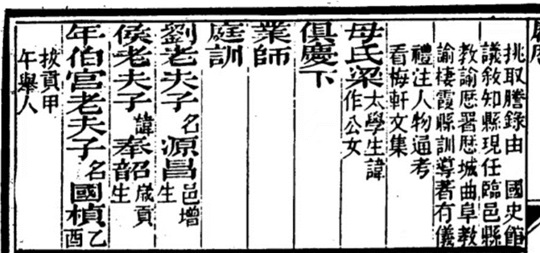 挑取謄錄由 國史館
議敘知縣現任臨邑縣
教諭歷署歷城曲阜教
諭棲霞縣訓導著有儀
禮注人物通考
看梅軒文集
母氏梁太學生諱作公女
俱慶下
業師
庭訓
劉老夫子名源昌邑增生
侯老夫子諱奉韶歲貢生
年伯宮老夫子名國楨乙酉
拔貢甲
午舉人